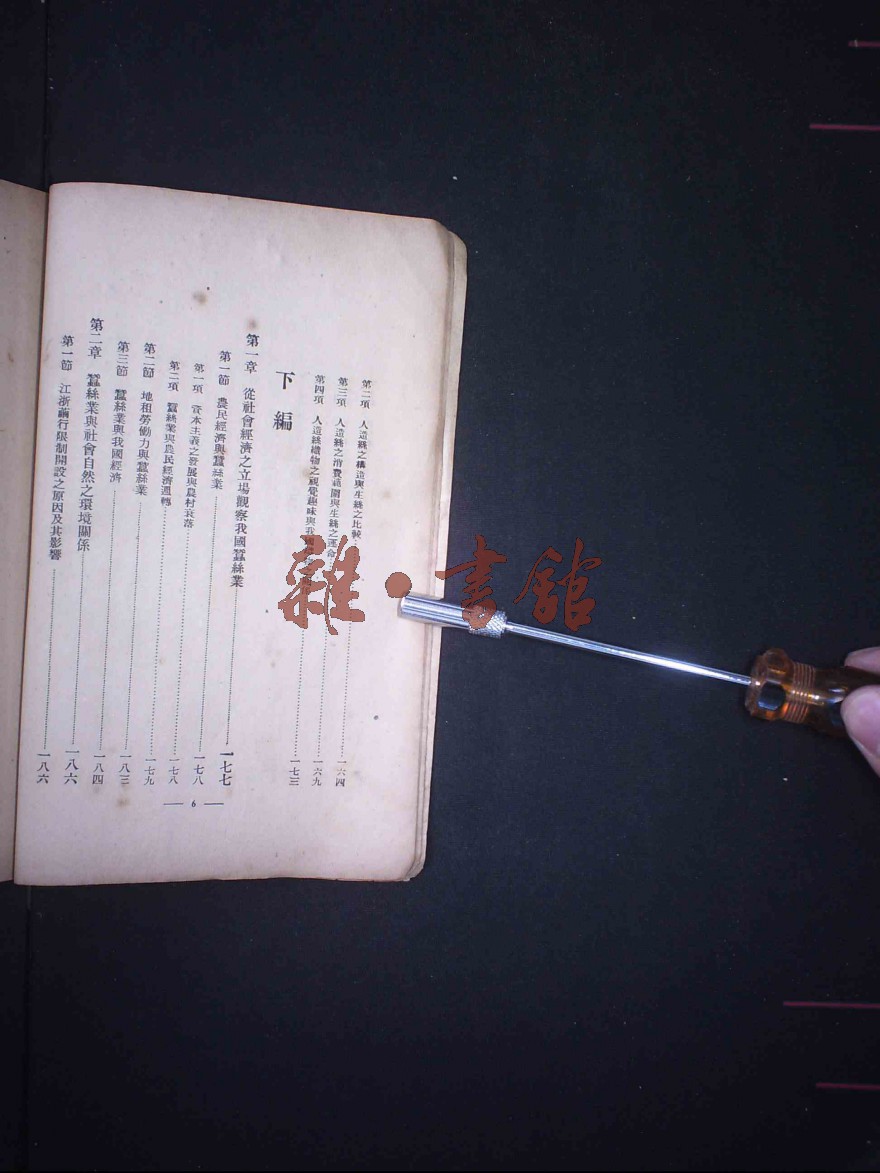 第二項　人造絲之構造與生絲之比較……一六四
第三項　人造絲之消費範圍與生絲之運命……一六九
第四項　人造絲織物之視覺趣味與我國……一七三
下編
第一章　從社會經濟之立場觀察我國蠶絲業……一七七
第一節　農民經濟與蠶絲業……一七八
第一項　資本主義之發展與農村衰落……一七八
第二項　蠶絲業與農民經濟週轉……一七九
第二節　地租勞働力與蠶絲業……一八三
第三節　蠶絲業與我國經濟……一八四
第二章　蠶絲業與社會自然之環境關係……一八六
第一節　江浙繭行限制開設之原因及其影響……一八六
— 6 —
雜·書館